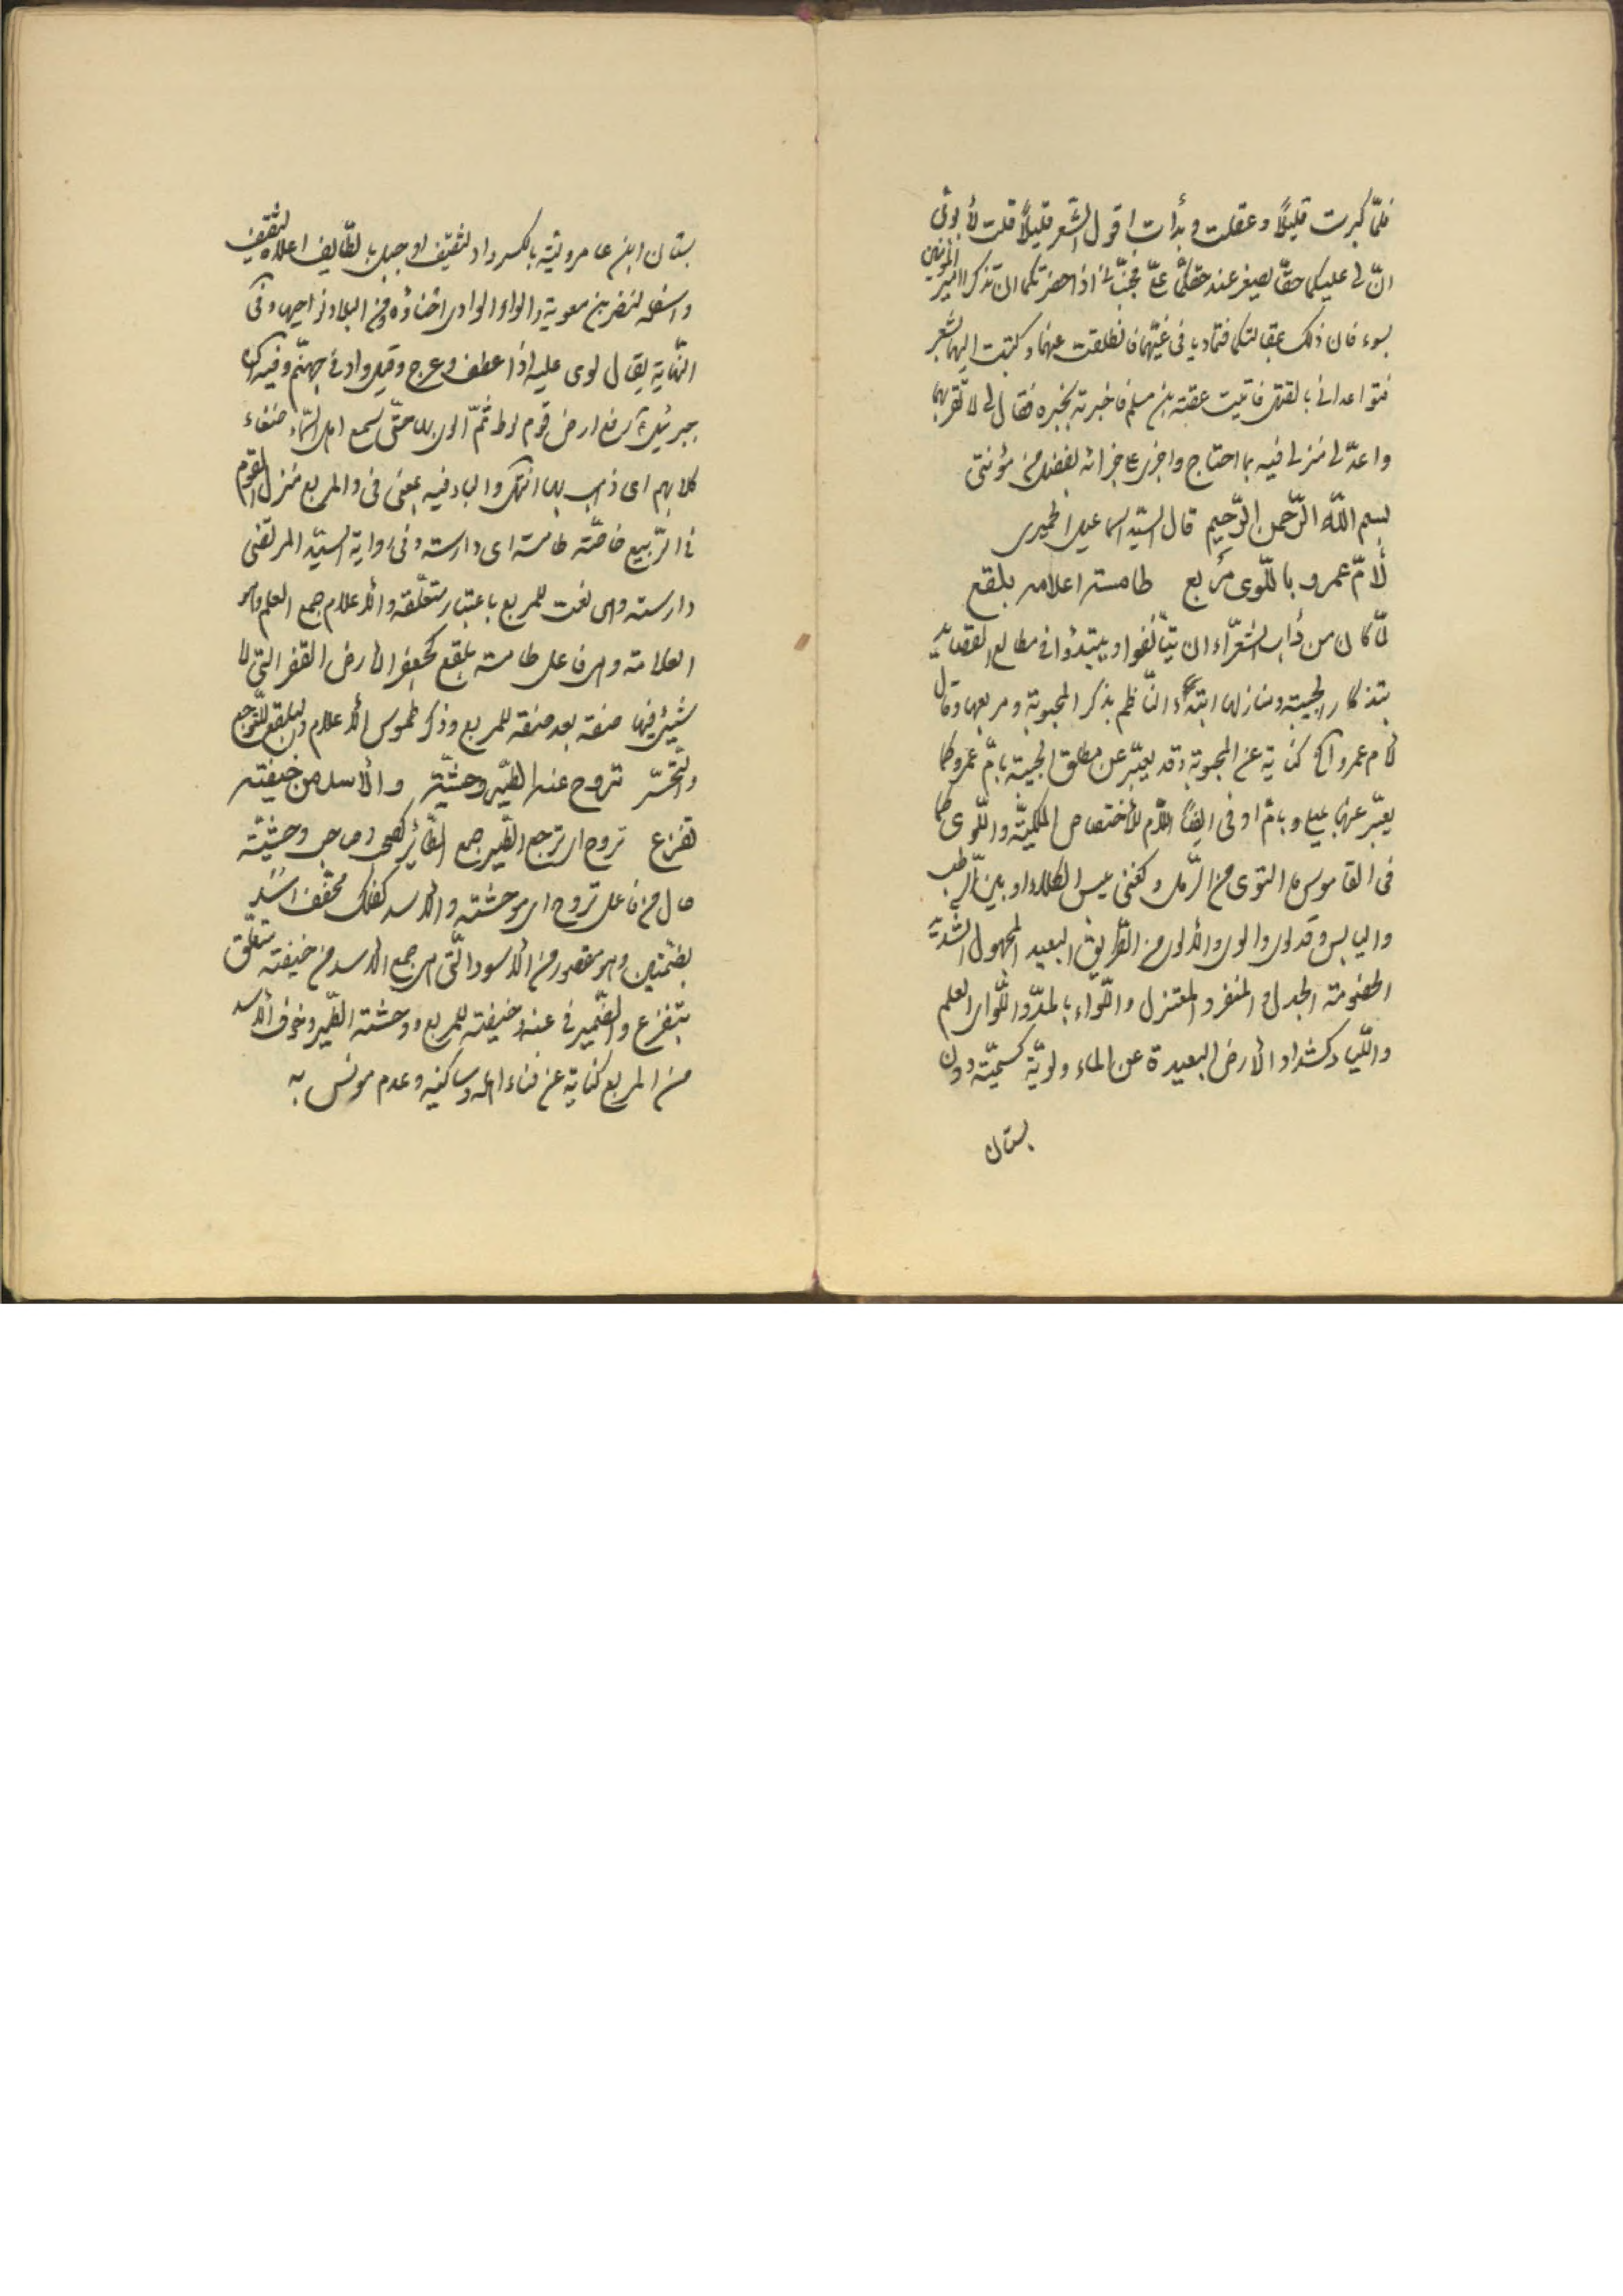 فلمّا كبرت قليلاً وعقلت وبدأت اقول الشّعر قليلاً قلت لأبويّ
انّ لي عليكما حقّاً يصغر عند حقّكما عليّ فجنّباني اذا حضرتكما ان تذكرا امير المؤمنين
بسوء فان ذلك عقالتكما فتماديا في غيّهما فانطلقت عنهما وكتبت اليهما شعر
فتواعداني بالقتل فاتيت عقبة بن مسلم فاخبرته بخبره فقال لي لا تقربهما
واعدّ لي منزلا فيه بما احتاج واجرى علي جراية لفضل من مؤنتي
بسم اللّه الرّحمن الرّحيم قال السيّد اسماعيل الحميرى
لأمّ عمرو باللّوى مربع طامسة اعلامه بلقع
لمّا كان من دأب الشعرّاء ان يتأنّفوا ويبتدؤا في مطالع القصايد
بتذكار الحبيبة ومنازلها ابتدء النّاظم بذكر المحبوبة ومربعها وقال
لام عمرو الخ كناية عن المحبوبة وقد يعبّر عن مطلق الحبيبة بامّ عمرو كما
يعبّر عنها بليلى وبامّ اوفى ايضاً اللّام للأختصاص الملكيّة واللّوى كما
في القاموس ما التوى من الرّمل وكغنى يبس الكلاء او بين الرطب
واليابس وقد لوى والوى والألوى من الطّريق البعيد المجهول الشديد
الخصومة الجدل والمنفرد المعتزل واللّواء بالمدّ واللّواى العلم
واللّياء كشداد الأرض البعيدة عن الماء ولويّة كسميّة دون
بستان
بستان ابن عامر وليّة بالكسر واد لثقيف او جبل بالطّايف اعلاه لثقيف
واسفله لنضر بن معوية والواو الوادى احناؤه ومن البلاد نواحيها وفي
النّهاية يقال لوى عليه اذا عطف وعرج وقيل واد في جهنّم وفيه ان
جبرئيل رفع ارض قوم لوط ثمّ الوى بها حتّى سمع اهل السّماء ضغاء
كلابهم اى ذهب بها انتهى والباء فيه بمعنى في والمربع منزل القوم
في الرّبيع خاصّة طامسة اى دارسة وفي رواية السيّد المرتضى
دارسة وهى نعت للمربع باعتبار متعلّقه والأعلام جمع العلم وهو
العلامة وهى فاعل طامسة بلقع كجعفر الأرض القفر التي لا
شيئ فيها صفة بعد صفة للمربع وذكر طموس الأعلام والبلقع للتّوجع
والتّحسّر تروح عنه الطّير وحشيّة والأسد من خيفته
تفزع تروح اى ترجع الطّير جمع الطّاير كصحب وصاحب وحشيّة
حال من فاعل تروح اى موحشة والأسد كفلك مخفّف اسد
بضمّتين وهو مقصور من الأسود الّتي هى جمع الأسد من خيفته متعلّق
بتفزع والضّمير في عنه وخيفته للمربع ووحشة الطّير وخوف الأسد
من المربع كناية عن فناء اهله وساكنيه وعدم مونس به